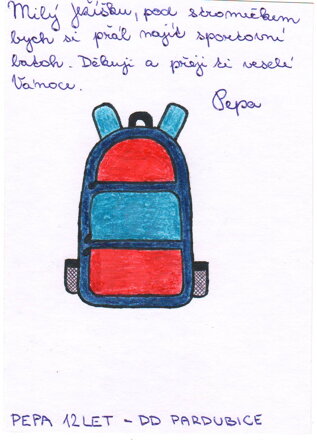 Milý Ježíšku, pod stromečkem
bych si přál najít sportovní
batoh. Děkuji a přeji ti veselé
Vánoce.
Pepa
PEPA 12LET - DD PARDUBICE